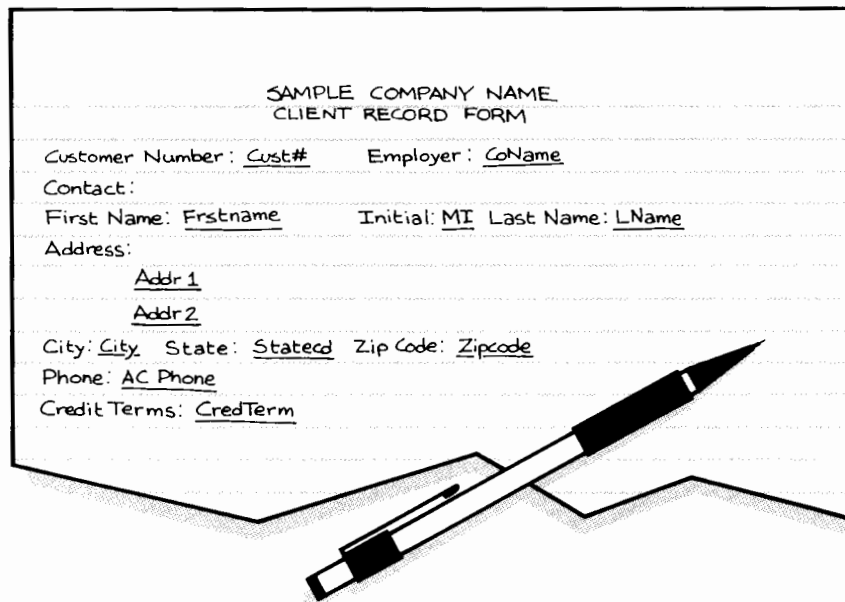 SAMPLE COMPANY NAME
CLIENT RECORD FORM
Customer Number: Cust# Employer: CoName
Contact:
First Name: Frstname Initial: MI Last Name: LName
Address:
Addr 1
Addr 2
City: City State: Statecd Zip Code: Zipcode
Phone: AC Phone
Credit Terms: CredTerm